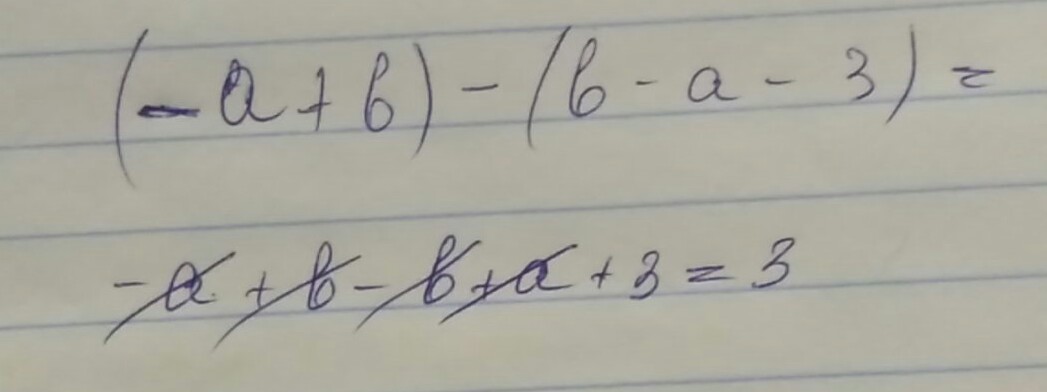 (-a+b)-(b-a-3)=
-a+b-b+a+3=3